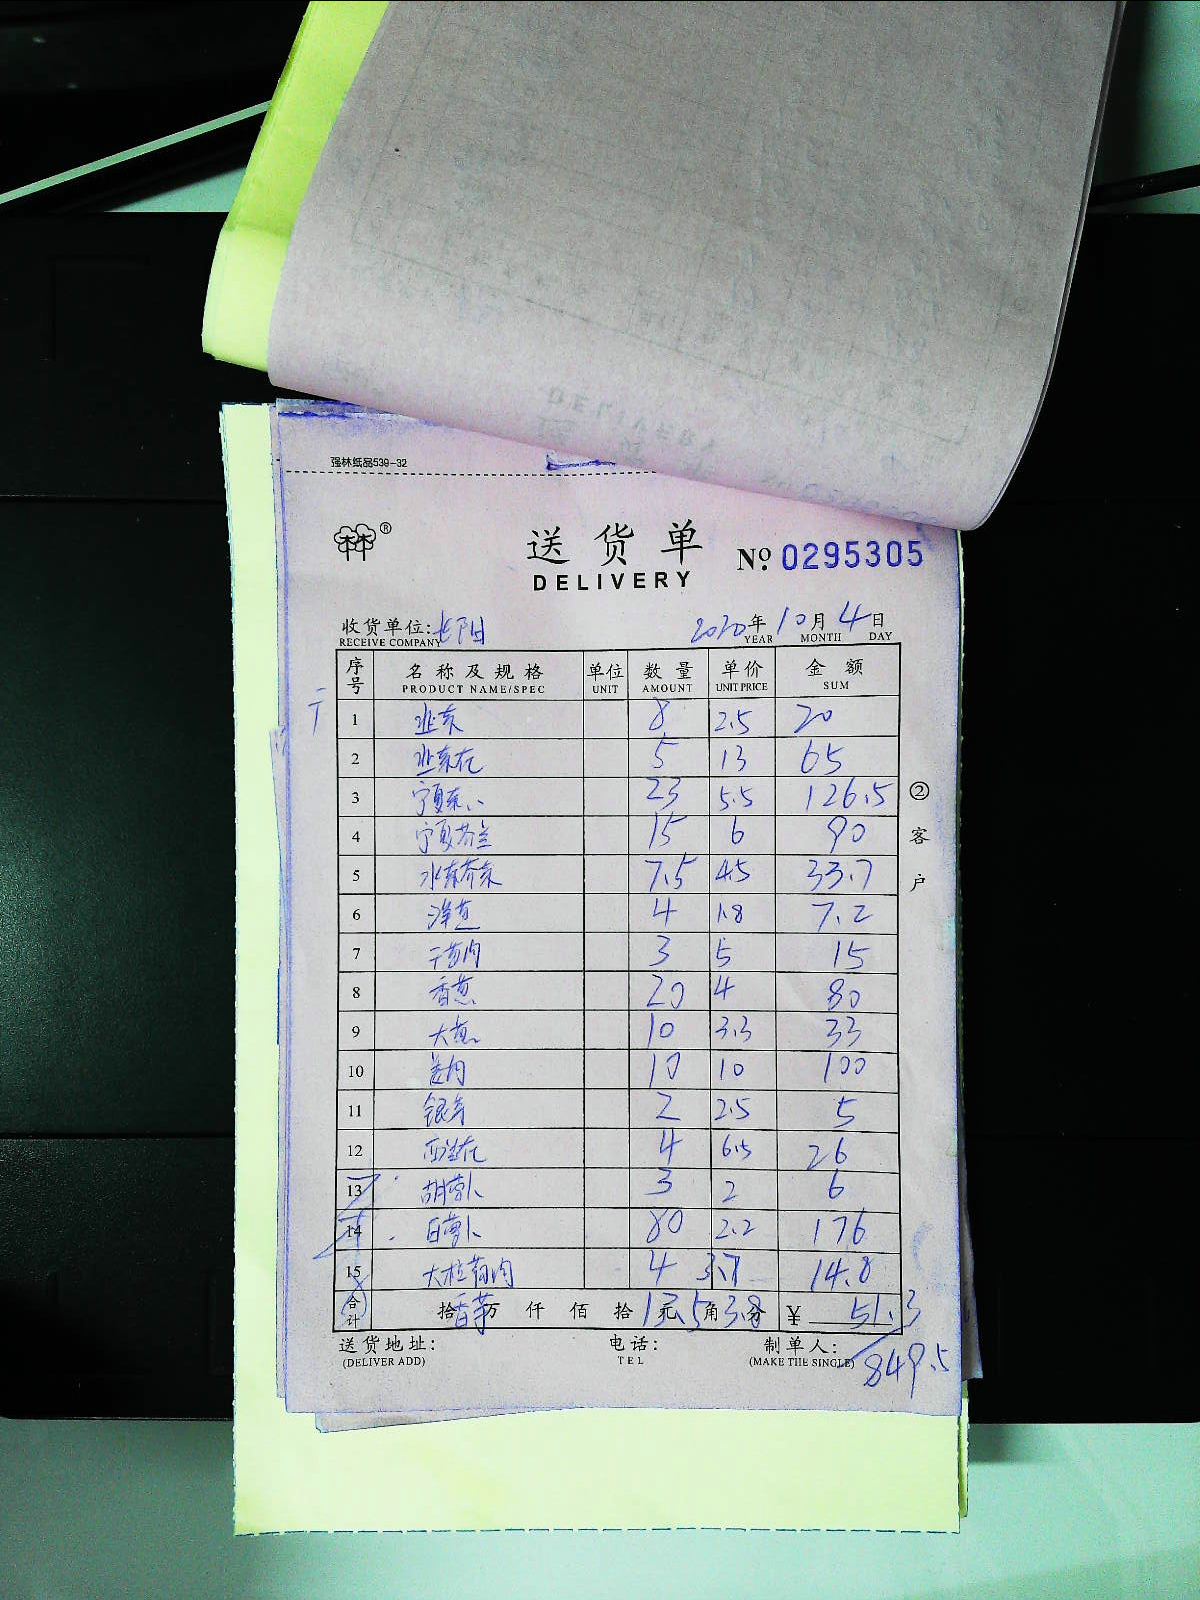 强林纸品539-32
送货单
DELIVERY
№ 0295305
收货单位: 2020年10月4日
RECEIVE COMPANY YEAR MONTH DAY
序号 名称及规格 单位 数量 单价 金额
PRODUCT NAME/SPEC UNIT AMOUNT UNIT PRICE SUM
1 韭菜 8 2.5 20
2 韭菜花 5 13 65
3 23 5.5 126.5
4 宁夏芥兰 15 6 90
5 水东芥菜 7.5 4.5 33.7
6 洋葱 4 1.8 7.2
7 3 5 15
8 香葱 20 4 80
9 大葱 10 3.3 33
10 10 10 100
11 银芽 2 2.5 5
12 4 6.5 26
13 胡萝卜 3 2 6
14 白萝卜 80 2.2 176
15 4 3.7 14.8
合计 拾 万 仟 佰 拾 元 角 分 ¥ 51.3
香茅 13.5 3.8
849.5
送货地址: 电话: 制单人:
(DELIVER ADD) TEL (MAKE THE SINGLE)
②客户